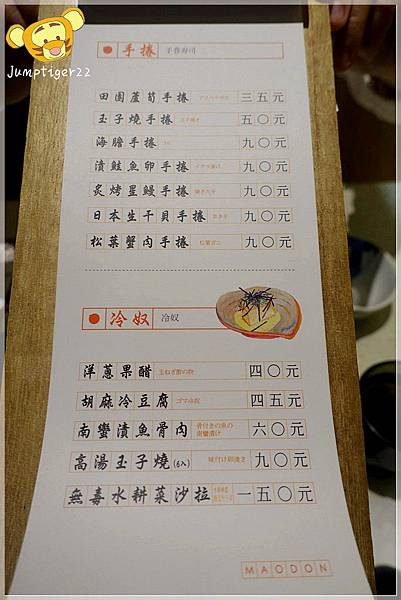 Jumptiger22
手捲 手巻寿司
田園蘆筍手捲 三五元
玉子燒手捲 五〇元
海膽手捲 九〇元
漬鮭魚卵手捲 九〇元
炙烤星鰻手捲 九〇元
日本生干貝手捲 九〇元
松葉蟹肉手捲 九〇元
冷奴 冷奴
洋蔥果醋 玉ねぎ酢の物 四〇元
胡麻冷豆腐 ゴマ冷奴 四五元
南蠻漬魚骨肉 骨付きの魚の南蠻漬け 六〇元
高湯玉子燒(6入) 味付け卵焼き 九〇元
無毒水耕菜沙拉 一五〇元
MAODON